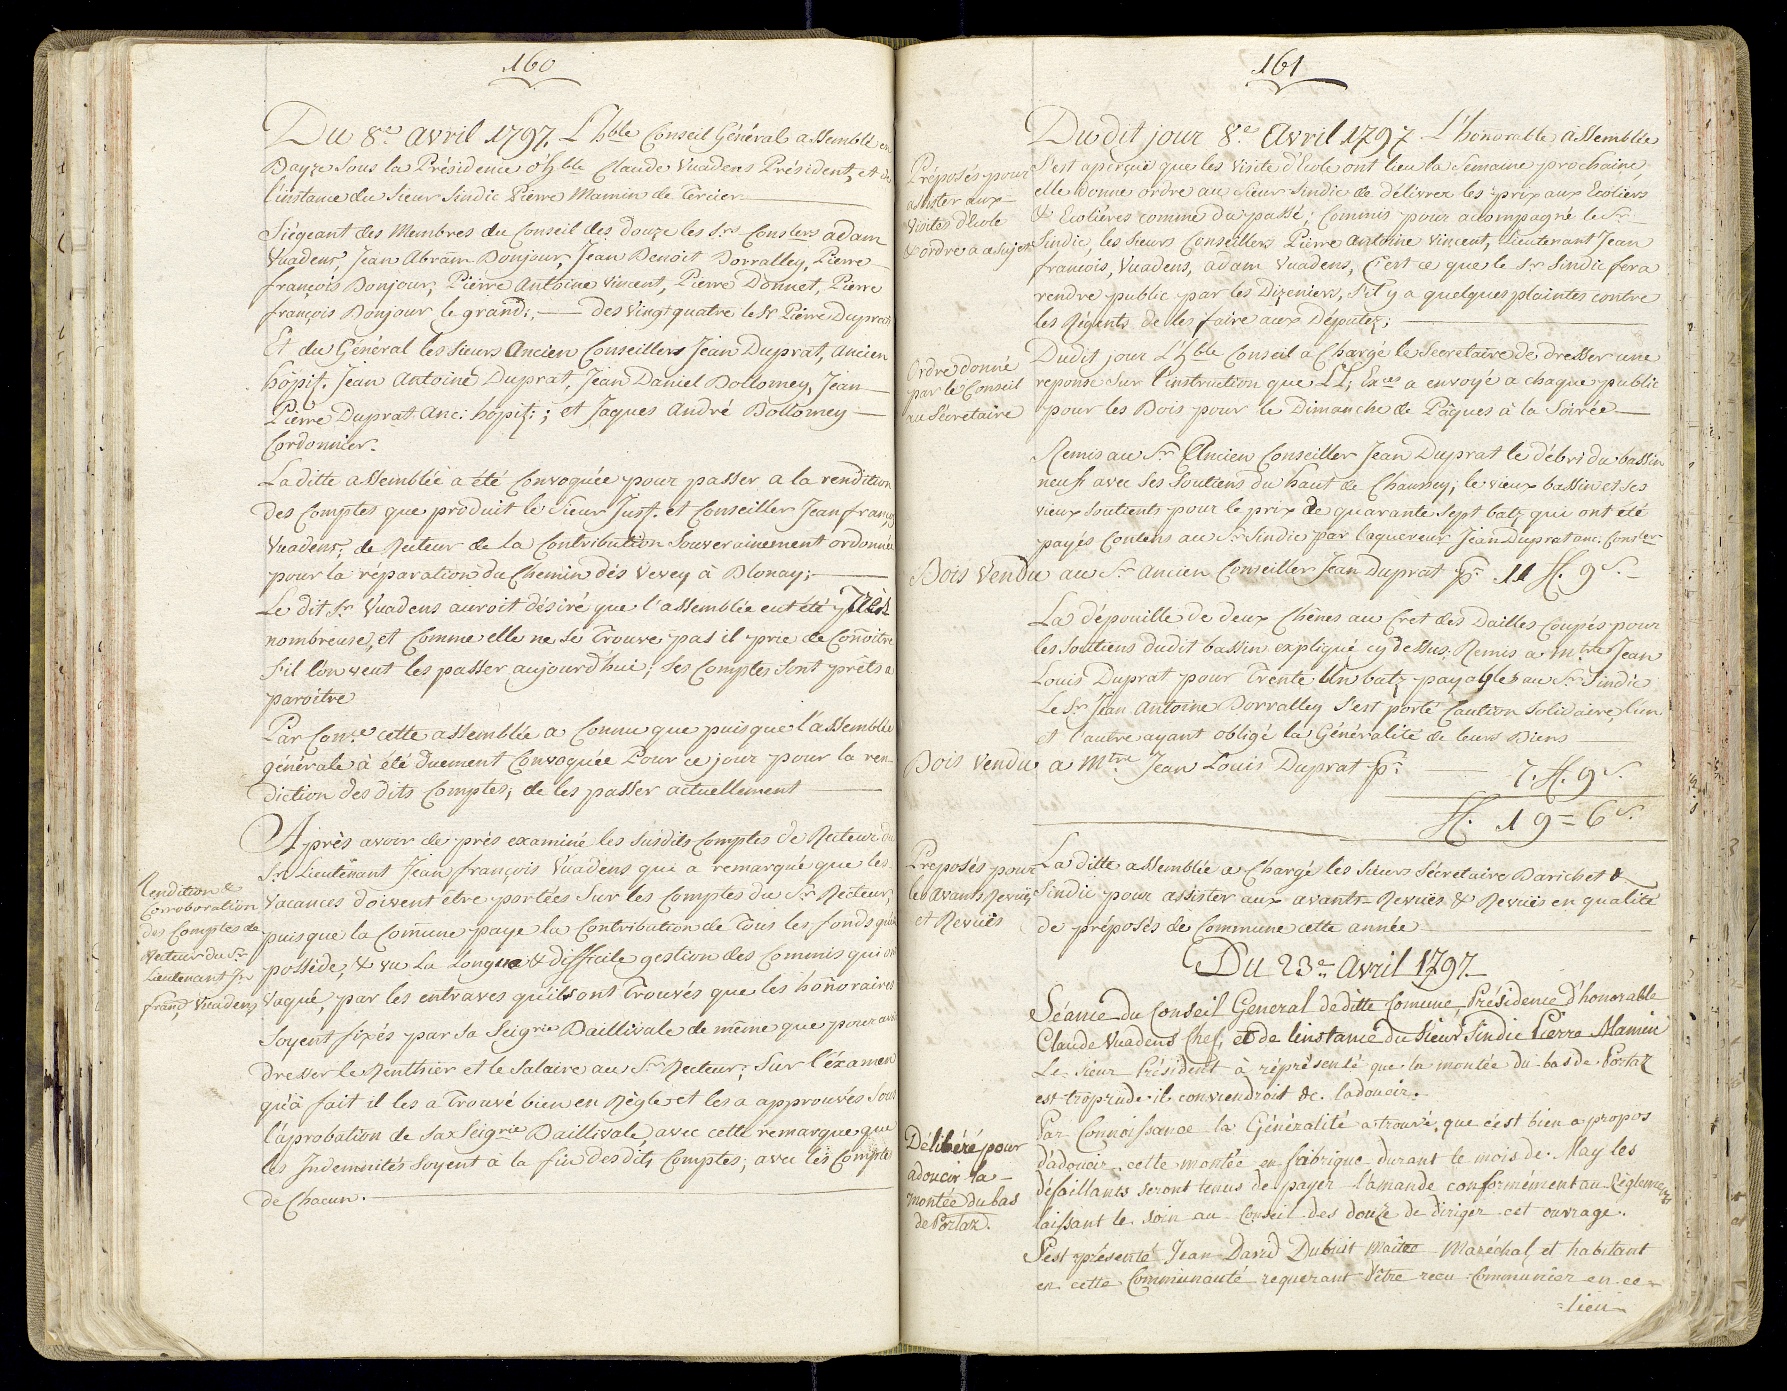 160
Du 8.e avril 1797. L'hble Conseil Général assemblé en
Bayze sous la Présidence d'hble Claude Vuadens Président, et de
l'instance du Sieur Sindic Pierre Mamin de Tercier
Siégeant des Membres du Conseil des douze les Srs Conslers adam
Vuadens, Jean Abram Bonjour, Jean Benoit Dorvalley, Pierre
françois Bonjour, Pierre Antoine Vincent, Pierre Donnet, Pierre
françois Bonjour le grand; — des Vingt quatre le Sr Pierre Duprat
Et du Général les Sieurs Ancien Conseillers Jean Duprat, Ancien
hôpit. Jean Antoine Duprat, Jean Daniel Dollomey, Jean
Pierre Duprat Anc: hôpit:; et Jaques André Dollomey
Cordonnier.
Laditte assemblée a été Convoquée pour passer a la rendition
des Comptes que produit le Sieur Just. et Conseiller Jean françs
Vuadens; de Recteur de la Contribution Souverainement ordonnée
pour la réparation du Chemin dès Vevey à Blonay;
Le dit Sr Vuadens auroit désiré que l'assemblée eut été plus
nombreuse, et Comme elle ne se Trouve pas il prie de Connoitre
s'il l'on veut les passer aujourd'hui; ses Comptes sont prêts a
paroitre
Par Conce cette assemblée a Connu que puisque l'assemblée
générale à été duement Convoquée Pour ce jour pour la ren-
diction des dits Comptes; de les passer actuellement
Après avoir de près examiné les susdits Comptes de Recteur du
Sr Lieutenant Jean françois Vuadens qui a remarqué que les
Rendition &
Corroboration
des Comptes de
Recteur du Sr
Lieutenant Jn
franç Vuadens
Vacances doivent être portées sur les Comptes du Sr Recteur,
puisque la Comune paye la Contribution de Tous les fonds qu'elle
possède, & vu La Longue & difficile gestion des Commis qui ont
Vaqué, par les entraves qu'ils ont Trouvés que les honoraires
soyent fixés par sa Seigrie Baillivale de même que pour avoir
dresser le Renthier et le Salaire au Sr Recteur; Sur l'éxamen
qu'à fait il les a Trouvé bien en Règle et les a approuvés Sous
l'aprobation de sa Seigrie Baillivale avec cette remarque que
les Indemnités soyent à la fin desdits Comptes; avec les Comptes
de Chacun.
161
Du dit jour 8.e Avril 1797 L'honorable assemblée
Préposés pour
assister aux
Visites d'Ecole
& ordre a ce sujet
S'est aperçue que les Visite d'Ecole ont lieu la Semaine prochaine,
elle donne ordre au Sieur Sindic de délivrer les prix aux Ecoliers
& Ecolières comme du passé; Commis pour acompagné le Sr
Sindic, les Sieurs Conseillers Pierre Antoine Vincent, Lieutenant Jean
francois, Vuadens, adam Vuadens, C'est ce que le Sr Sindic fera
rendre public par les Dizeniers, s'il y a quelques plaintes contre
les Régents de les faire aux Députez;
Ordre donné
par le Conseil
au Sécretaire
Dudit jour L'hble Conseil a Chargé le Secretaire de dresser une
reponse sur l'instruction que LL. Exces a envoyé a chaque public
pour les Bois pour le Dimanche de Pâques à la Soirée
Remis au Sr Ancien Conseiller Jean Duprat le débri du bassin
neuf avec ses Soutiens du haut de Chaumey; le vieux bassin et ses
vieux Soutients pour le prix de quarante Sept batz qui ont été
payés Contens au Sr Sindic par l'aquereur Jean Duprat anc. Consler
Bois Vendu au Sr Ancien Conseiller Jean Duprat pr 11 ff. 9 s.
La dépouille de deux Chênes au Cret des Dailles Coupés pour
les Soutiens dudit bassin expliqué cy dessus. Remis a mtre Jean
Louis Duprat pour Trente Un batz payables au Sr Sindic
Le Sr Jean Antoine Dorvalley s'est porté Caution Solidaire, l'un
et l'autre ayant obligé la Généralité de leurs Biens
Bois Vendu a Mtre Jean Louis Duprat pr 7. ff. 9 s.
ff. 19 = 6 s.
Préposés pour
les Avants Revües
et Revuës
La ditte assemblée a Chargé les Sieurs Sécretaire Barichet &
Sindic pour assister aux avants-Revuës & Revuës en qualité
de préposés de Commune cette année
Du 23e avril 1797
Séance du Conseil General de ditte Comune, Présidence d'honorable
Claude Vuadens Chef, et de l'instance du Sieur Sindic Pierre Mamin
Le Sieur Président à réprésenté que la montée du bas de Portaz
est trop rude il conviendroit de l'adoucir.
Délibéré pour
adoucir la
montée du bas
de Portaz.
Par Connoissance la Généralité a trouvé, que c'est bien a propos
d'adoucir cette montée en fabrique durant le mois de May les
défaillants seront tenus de payer l'amande conformément au Réglement
laissant le soin au Conseil des douze de diriger cet ouvrage.
S'est présenté Jean David Dubuit Maitre Maréchal, et habitant
en cette Communauté requerant d'être recu Communier en ce
=lieu